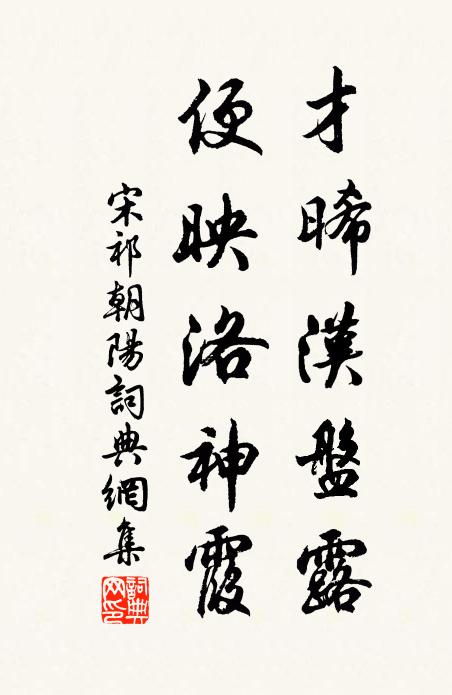 才晞漢盤露
便映洛神霞
宋祁朝陽詞典網集
詞典网印